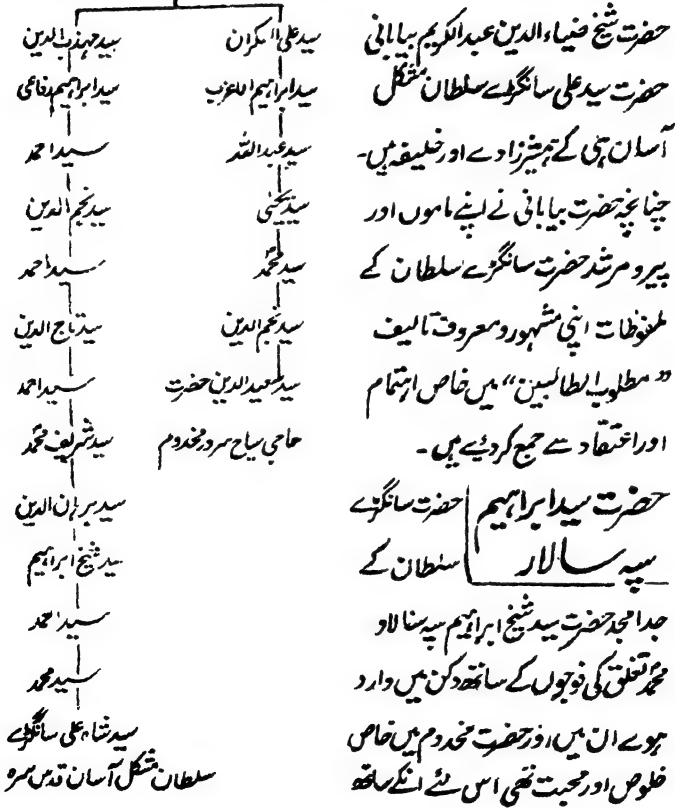 حضرت شیخ ضیاء الدین عبدالکریم بیابانی
حضرت سید علی سانگڑے سلطان مشکل
آسان ہی کے ہمشیرزادے اور خلیفہ ہیں۔
چنانچہ حضرت بیابانی نے اپنے ماموں اور
پیرو مرشد حضرت سانگڑے سلطان کے
ملفوظات اپنی مشہور و معروف تالیف
”مطلوب الطالبین“ میں خاص اہتمام
اور اعتقاد سے جمع کردیے ہیں۔
حضرت سید ابراہیم سپہ سالار
حضرت سانگڑے
سلطان کے
جدامجد حضرت سید شیخ ابراہیم سپہ سالار
محمد تغلق کی فوجوں کے ساتھ دکن میں وارد
ہوے ان میں اور حضرت مخدوم میں خاص
خلوص اور محبت تھی اس لئے انکے ساتھ
سید علی السکران
سید ابراہیم الاعزب
سید عبداللہ
سید یحیٰی
سید محمد
سید نجم الدین
سید سعید الدین حضرت
حاجی سیاح سرور مخدوم
سید مہذب الدین
سید ابراہیم رفاعی
سید احمد
سید نجم الدین
سید احمد
سید تاج الدین
سید احمد
سید شریف محمد
سید برہان الدین
سید شیخ ابراہیم
سید احمد
سید محمد
سید شاہ علی سانگڑے
سلطان مشکل آسان قدس سرہ